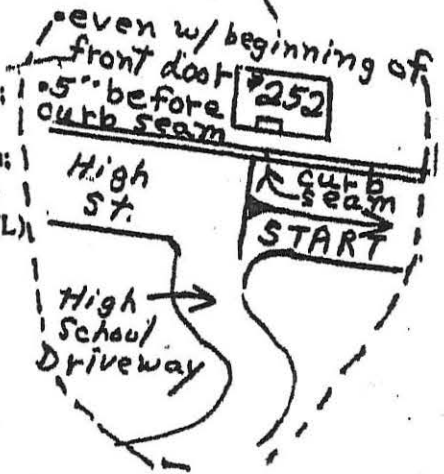 • even w/ beginning of
front door
#252
• 5" before
curb seam
High
St.
curb
seam
START
L)
High
School
Driveway